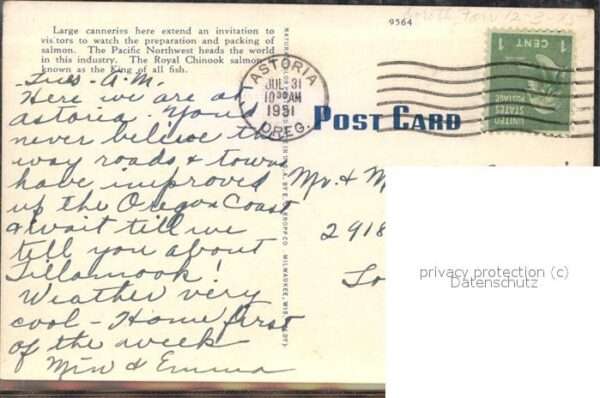 Large canneries here extend an invitation to
visitors to watch the preparation and packing of
salmon. The Pacific Northwest heads the world
in this industry. The Royal Chinook salmon
known as the King of all fish.
9564
ASTORIA
JUL 31
10 30 AM
1951
OREG.
1 CENT 1
UNITED
STATES
POSTAGE
POST CARD
Tues - A.M.
Here we are at
Astoria. You'd
never believe the
way roads & towns
have improved
up the Oregon Coast
& wait till we
tell you about
Tillamook!
Weather very
cool - Home first
of the week
Min & Emma
Mr. & M
2918
Lo
privacy protection (c)
Datenschutz